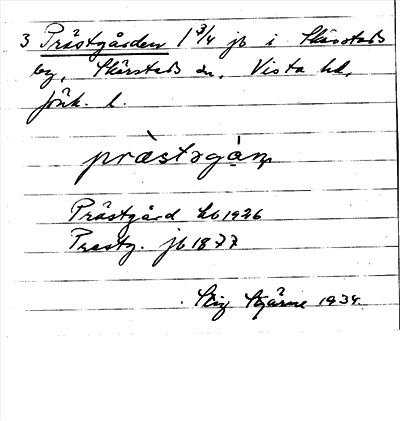 3 Prästgården 1 3/4 jb i Skärstads
by, Skärstads sn, Vista hd,
Jönk. l.
præ̀stəgɑ̣́ṇ
Prästgård hb 1926
Prestg. jb 1877
Stig Stjärne 1934.